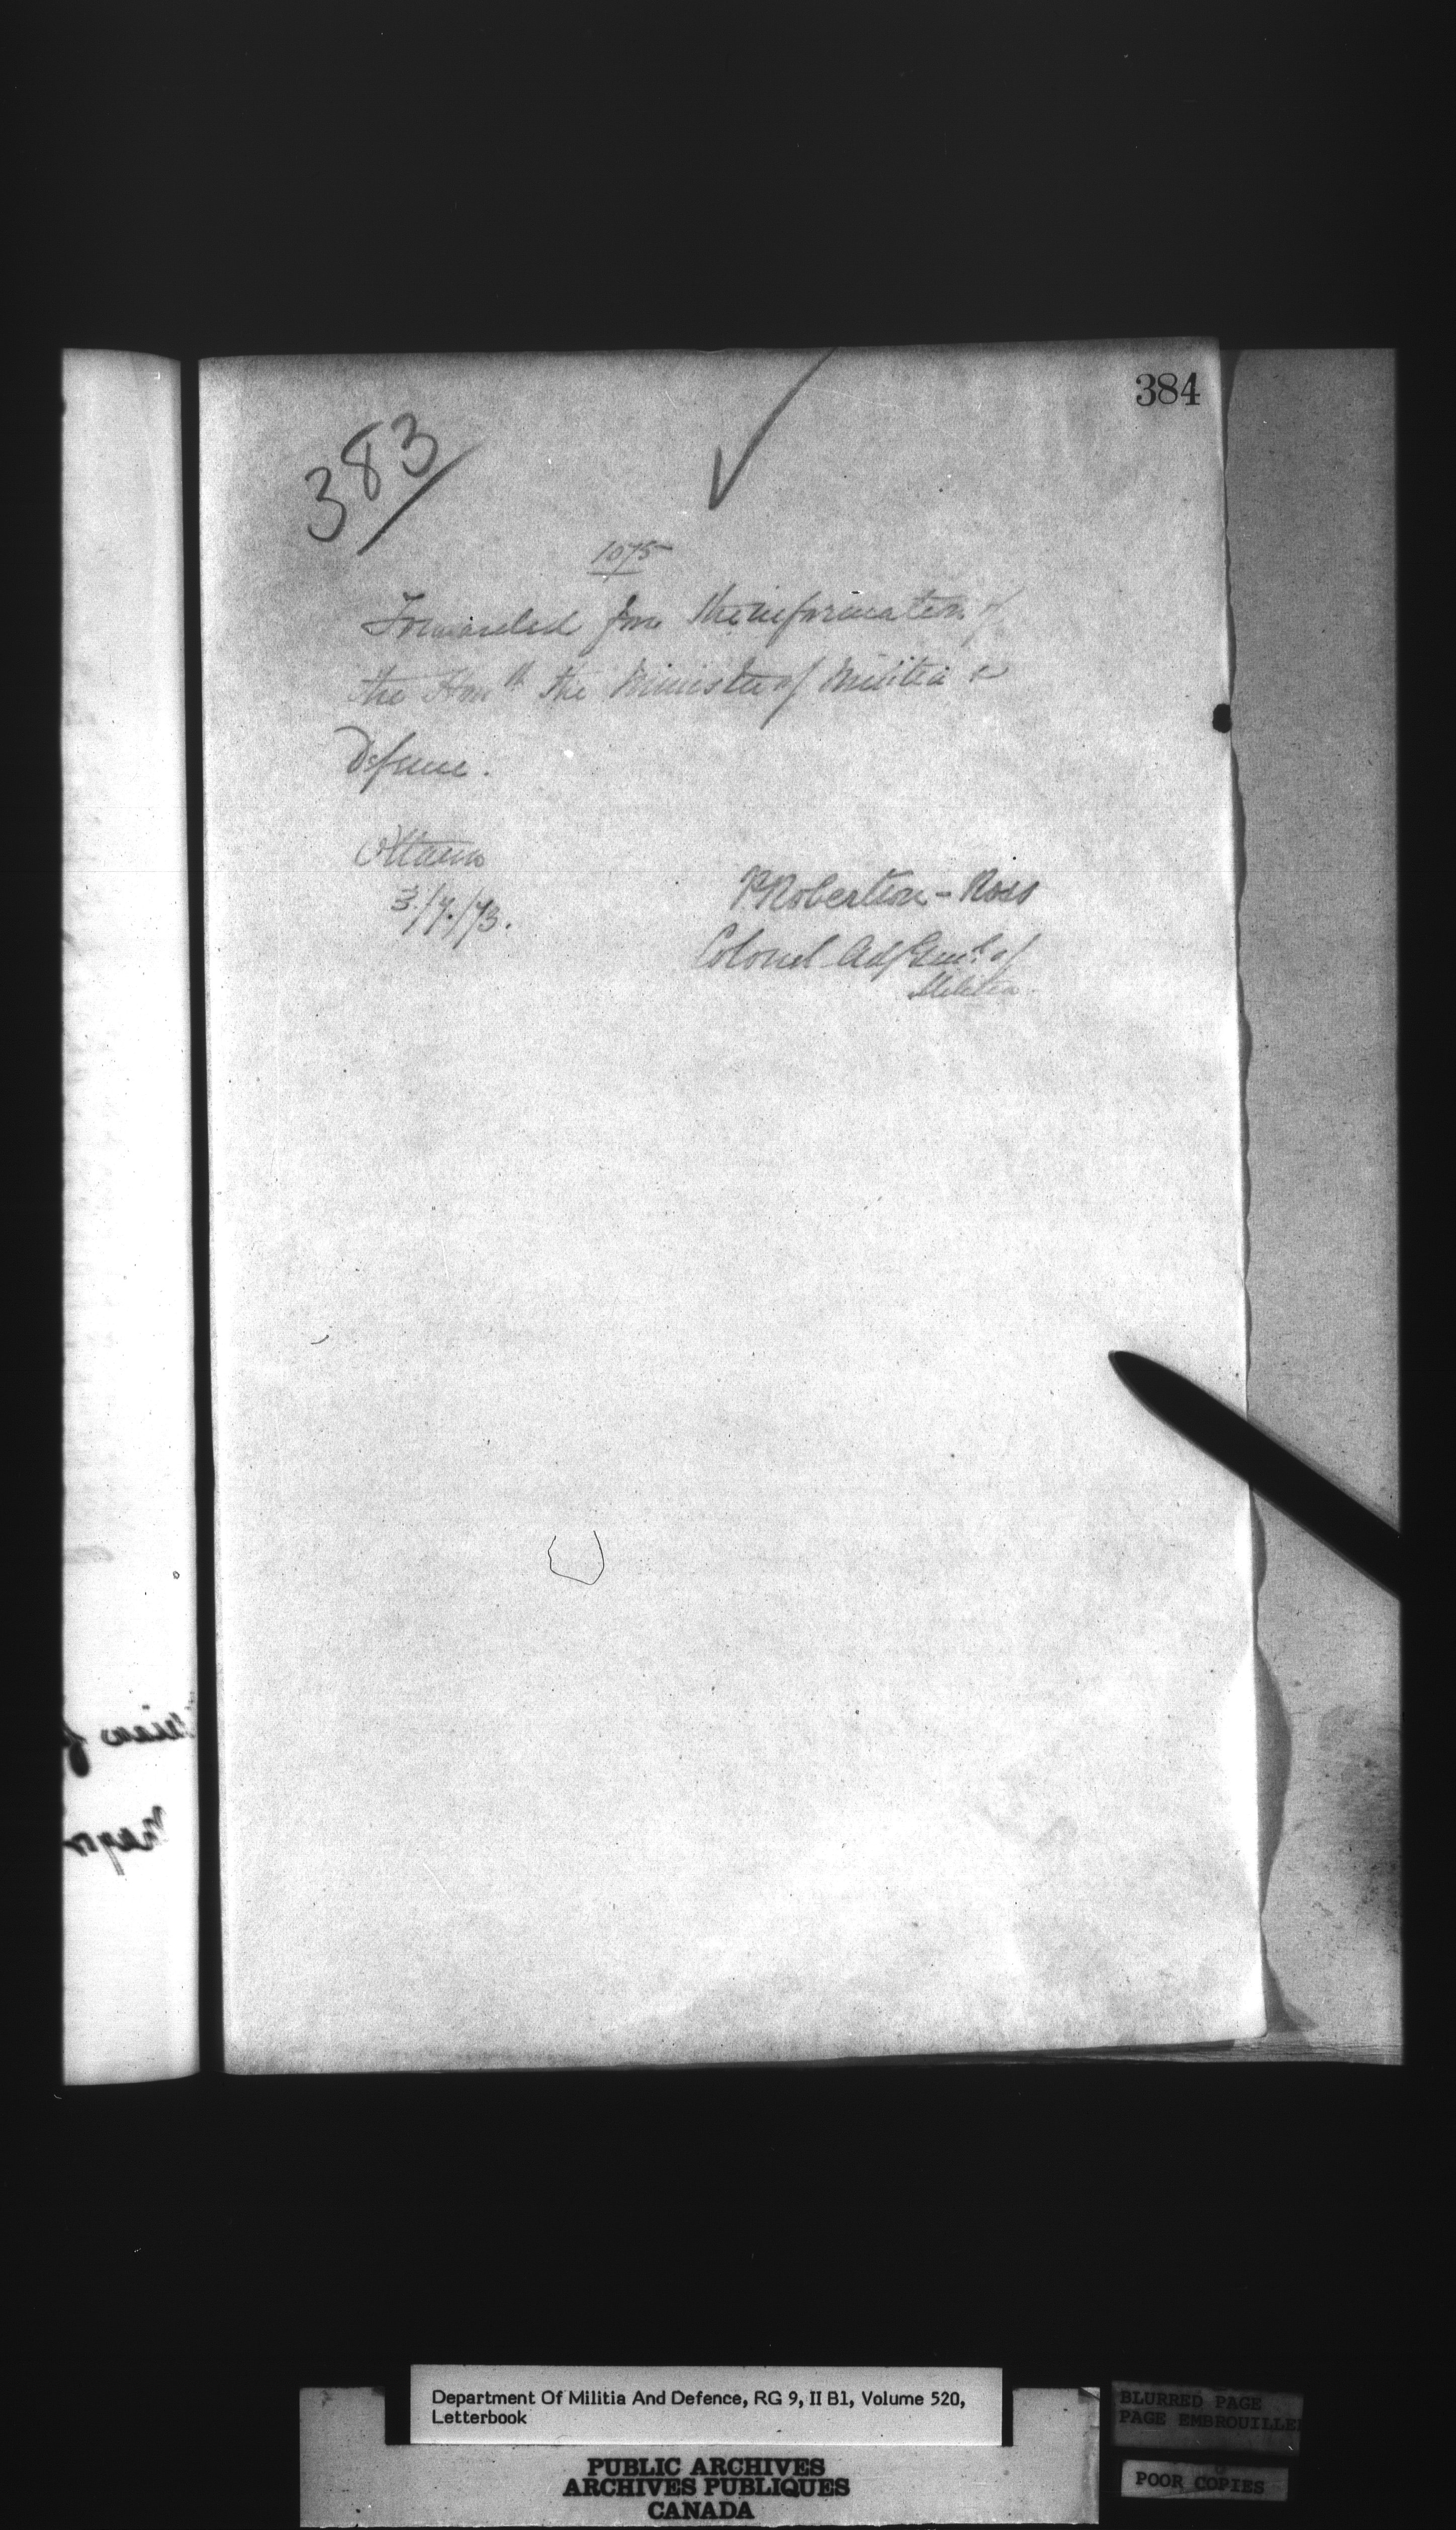 384
383
1075
Forwarded for the information of
the Honble the Minister of Militia &
Defence.
Ottawa
3/7/73.
P. Robertson-Ross
Colonel Adj Genl. of
Militia.
Department Of Militia And Defence, RG 9, II B1, Volume 520,
Letterbook
PUBLIC ARCHIVES
ARCHIVES PUBLIQUES
CANADA
BLURRED PAGE
PAGE EMBROUILLE
POOR COPIES